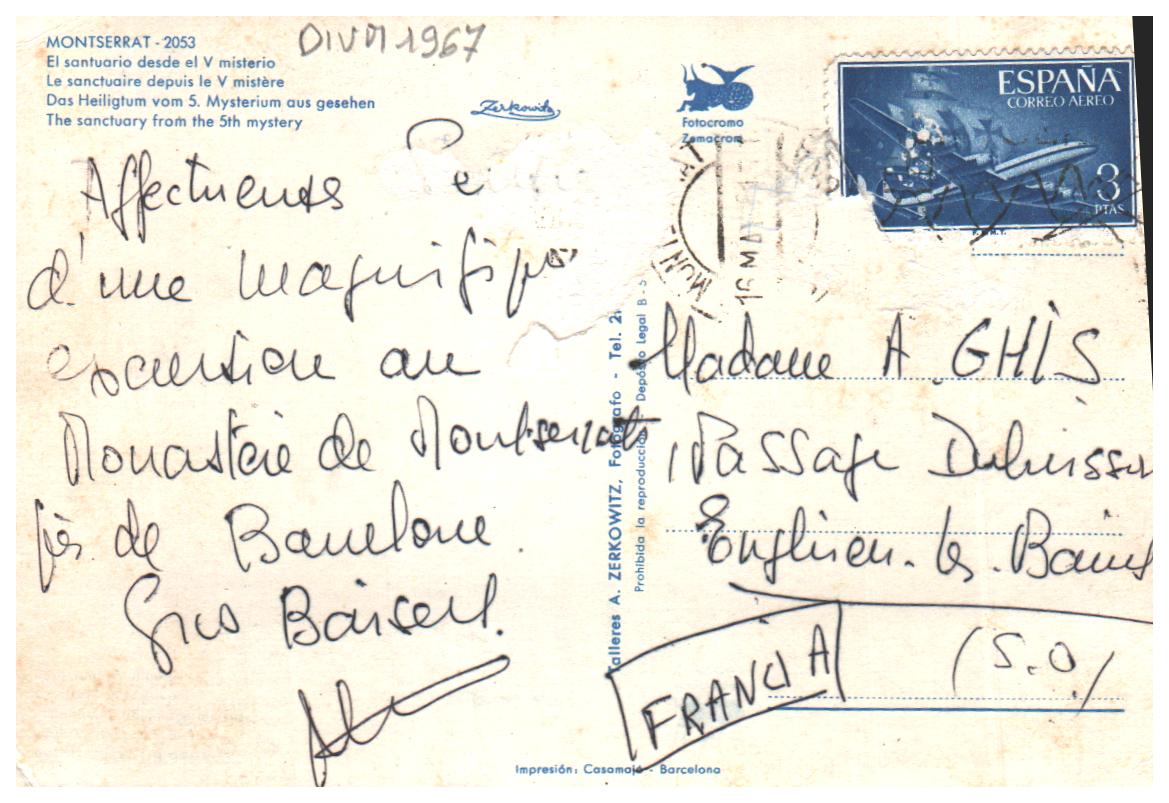 MONTSERRAT - 2053
El santuario desde el V misterio
Le sanctuaire depuis le V mistère
Das Heiligtum vom 5. Mysterium aus gesehen
The sanctuary from the 5th mystery
1967
Zerkowitz
Fotocromo
Zemacrom
ESPAÑA
CORREO AEREO
3
PTAS
16 MA
Affectueuses
d'une magnifique
excursion au
Monastère de Montserrat
près de Barcelone.
Gros Baisers.
Talleres A. ZERKOWITZ, Fotógrafo - Tel. 2
Prohibida la reproducción. Depósito Legal B - 5
Madame A. GHIS
Passage Dubuisson
Enghien-les-Bains
(S.O)
FRANCIA
Impresión: Casamajó - Barcelona